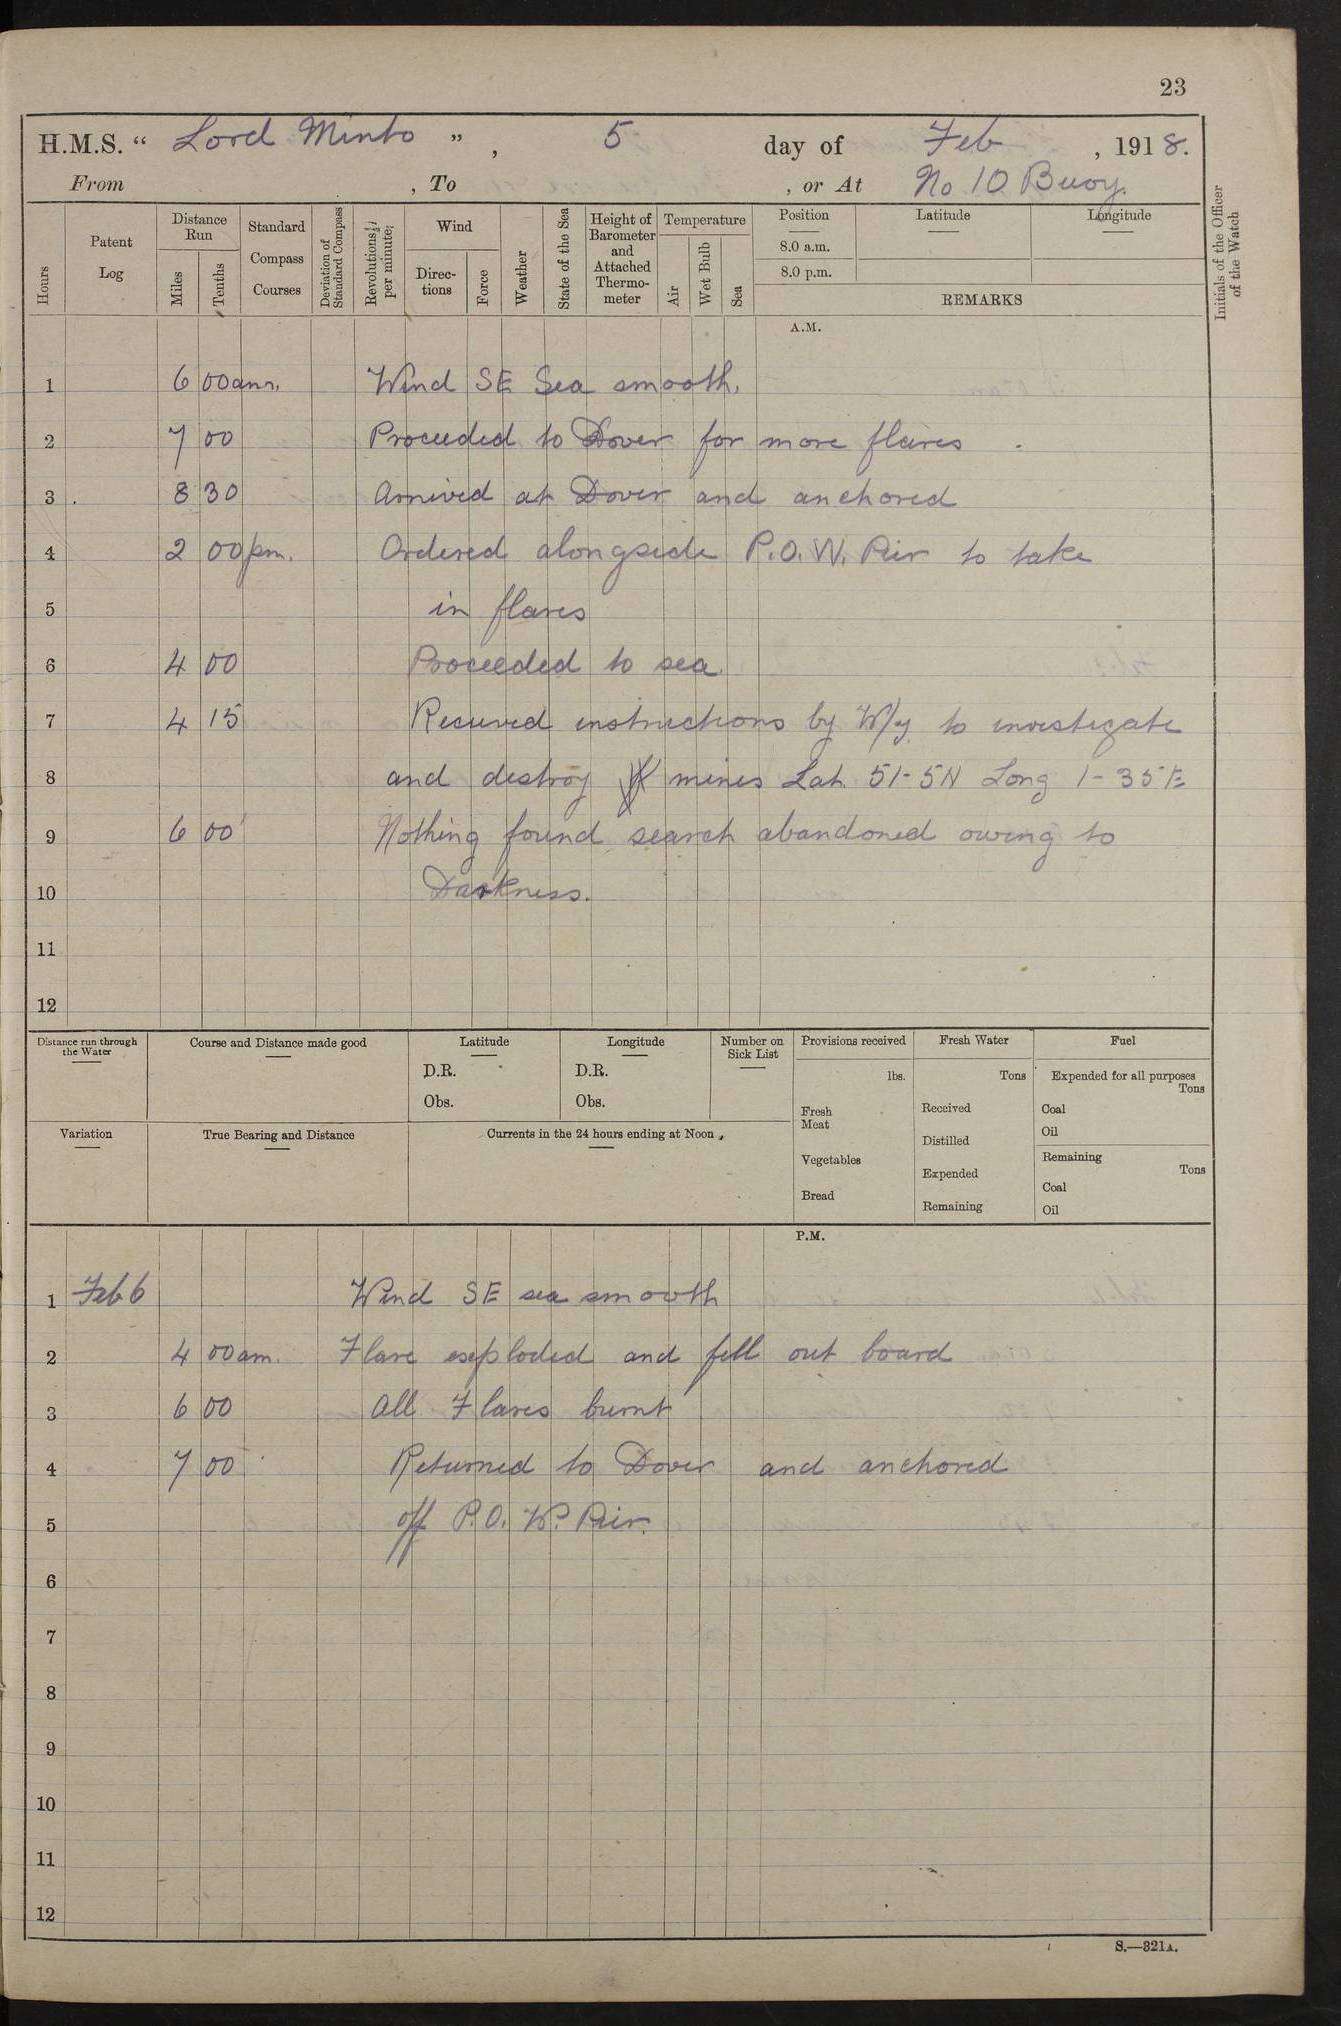 23
H.M.S. “ Lord Minto ” , 5 day of Feb , 1918.
From , To , or At No 10 Buoy.
Hours
Patent Log
Distance Run
Miles
Tenths
Standard Compass Courses
Deviation of Standard Compass
Revolutions per minute
Wind
Directions
Force
Weather
State of the Sea
Height of Barometer and Attached Thermometer
Temperature
Air
Wet Bulb
Sea
Position
8.0 a.m.
8.0 p.m.
Latitude
Longitude
REMARKS
Initials of the Officer of the Watch
A.M.
1 6 00am. Wind SE Sea smooth.
2 7 00 Proceeded to Dover for more flares .
3 8 30 Arrived at Dover and anchored
4 2 00pm. Ordered alongside P.O.W. Pier to take
5 in flares
6 4 00 Proceeded to sea.
7 4 15 Received instructions by W/y. to investigate
8 and destroy mines Lat. 51-5N Long 1-35E
9 6 00 Nothing found search abandoned owing to
10 Darkness.
11
12
Distance run through the Water
Course and Distance made good
Latitude
D.R.
Obs.
Longitude
D.R.
Obs.
Number on Sick List
Provisions received
lbs.
Fresh Meat
Vegetables
Bread
Fresh Water
Tons
Received
Distilled
Expended
Remaining
Fuel
Expended for all purposes
Tons
Coal
Oil
Remaining
Tons
Coal
Oil
Variation
True Bearing and Distance
Currents in the 24 hours ending at Noon
P.M.
1 Feb 6 Wind SE sea smooth
2 4 00am. Flare exploded and fell out board
3 6 00 All Flares burnt
4 7 00 Returned to Dover and anchored
5 off P.O.W. Pier.
6
7
8
9
10
11
12
S.—321A.